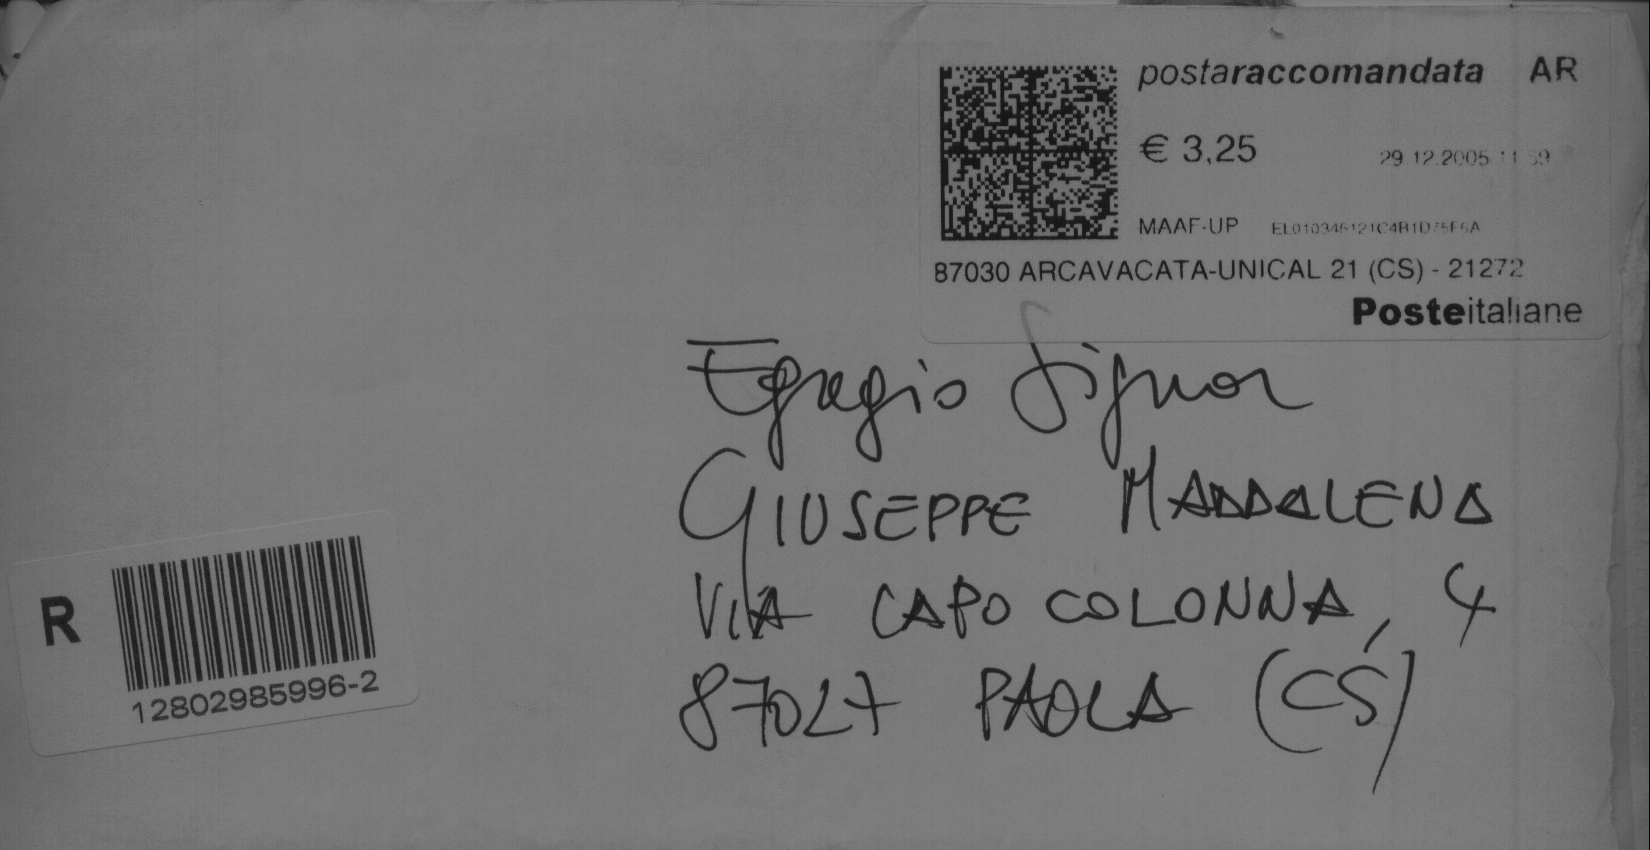 postaraccomandata AR
€ 3,25 29.12.2005 11
MAAF-UP
87030 ARCAVACATA-UNICAL 21 (CS) - 21272
Posteitaliane
Egregio Signor
GIUSEPPE MADDALENA
VIA CAPO COLONNA, 4
87027 PAOLA (CS)
R
12802985996-2